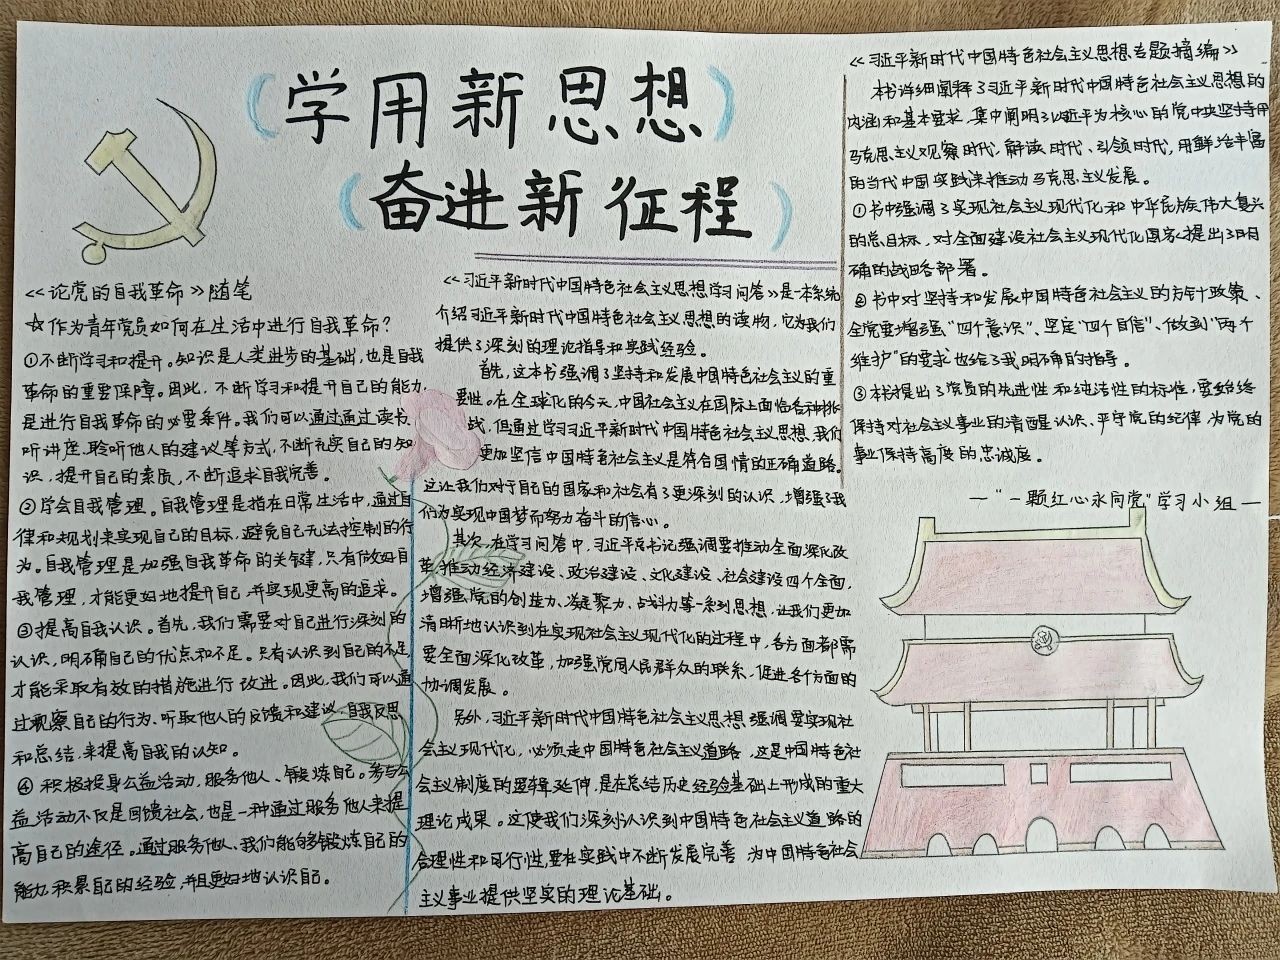 学用新思想
奋进新征程
《论党的自我革命》随笔
☆作为青年党员如何在生活中进行自我革命?
①不断学习和提升。知识是人类进步的基础,也是自我
革命的重要保障。因此,不断学习和提升自己的能力,
是进行自我革命的必要条件。我们可以通过通过读书、
听讲座、聆听他人的建议等方式,不断充实自己的知
识,提升自己的素质,不断追求自我完善。
②学会自我管理。自我管理是指在日常生活中,通过自
律和规划来实现自己的目标,避免自己无法控制的行
为。自我管理是加强自我革命的关键,只有做好自
我管理,才能更好地提升自己,并实现更高的追求。
③提高自我认识。首先,我们需要对自己进行深刻的
认识,明确自己的优点和不足。只有认识到自己的不足,
才能采取有效的措施进行改进。因此,我们可以通
过观察自己的行为、听取他人的反馈和建议、自我反思
和总结,来提高自我的认知。
④积极投身公益活动,服务他人、锻炼自己。参与公
益活动不仅是回馈社会,也是一种通过服务他人来提
高自己的途径。通过服务他人,我们能够锻炼自己的
能力,积累自己的经验,并且更好地认识自己。
《习近平新时代中国特色社会主义思想学习问答》是一本系统
介绍习近平新时代中国特色社会主义思想的读物,它为我们
提供了深刻的理论指导和实践经验。
首先,这本书强调了坚持和发展中国特色社会主义的重
要性。在全球化的今天,中国社会主义在国际上面临各种挑
战,但通过学习习近平新时代中国特色社会主义思想,我们
更加坚信中国特色社会主义是符合国情的正确道路。
这让我们对于自己的国家和社会有了更深刻的认识,增强了我
们为实现中国梦而努力奋斗的信心。
其次,在学习问答中,习近平总书记强调要推动全面深化改
革,推动经济建设、政治建设、文化建设、社会建设四个全面,
增强党的创造力、凝聚力、战斗力等一系列思想,让我们更加
清晰地认识到在实现社会主义现代化的过程中,各方面都需
要全面深化改革,加强党同人民群众的联系,促进各个方面的
协调发展。
另外,习近平新时代中国特色社会主义思想强调要实现社
会主义现代化,必须走中国特色社会主义道路,这是中国特色社
会主义制度的逻辑延伸,是在总结历史经验基础上形成的重大
理论成果。这使我们深刻认识到中国特色社会主义道路的
合理性和可行性,要在实践中不断发展完善,为中国特色社会
主义事业提供坚实的理论基础。
《习近平新时代中国特色社会主义思想专题摘编》
本书详细阐释了习近平新时代中国特色社会主义思想的
内涵和基本要求,集中阐明了以习近平为核心的党中央坚持用
马克思主义观察时代、解读时代、引领时代,用鲜活丰富
的当代中国实践来推动马克思主义发展。
①书中强调了实现社会主义现代化和中华民族伟大复兴
的总目标,对全面建设社会主义现代化国家提出了明
确的战略部署。
②书中对坚持和发展中国特色社会主义的方针政策、
全党要增强“四个意识”、坚定“四个自信”、做到“两个
维护”的要求也给了我明确的指导。
③本书提出了党员的先进性和纯洁性的标准,要始终
保持对社会主义事业的清醒认识、严守党的纪律,为党的
事业保持高度的忠诚度。
—“一颗红心永向党”学习小组—